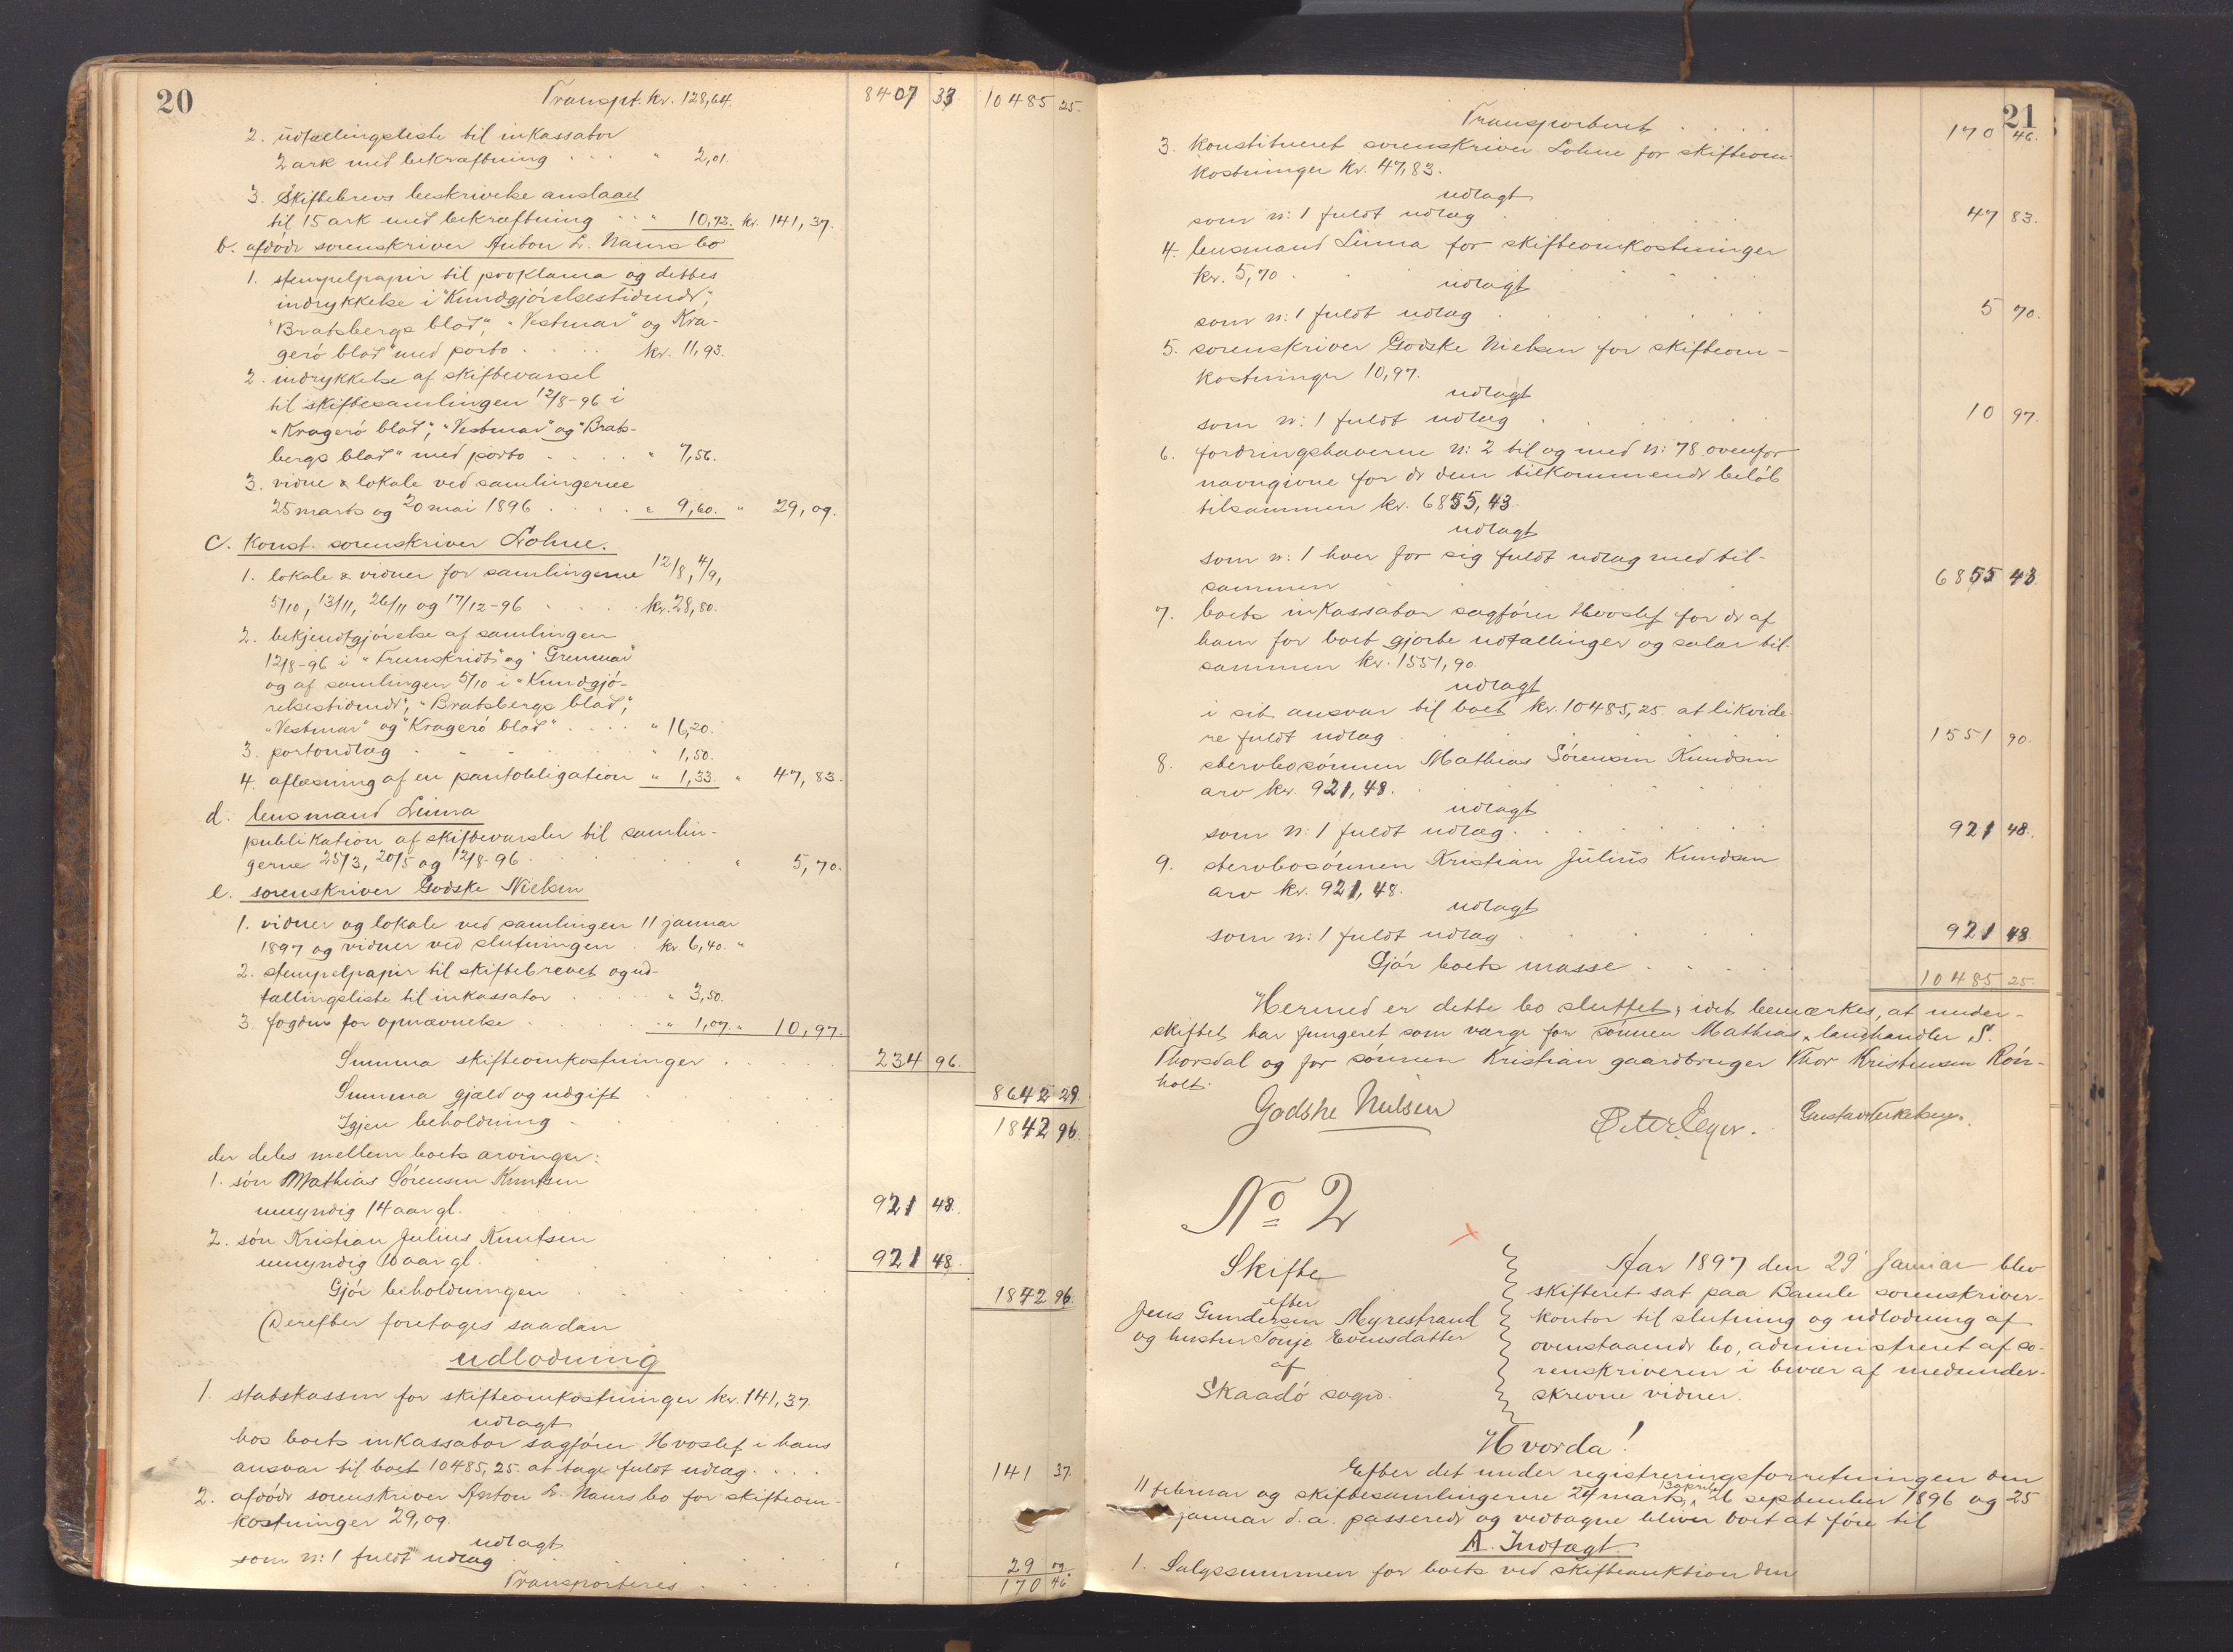 20
Transpt. kr. 128,64. 8407 33. 10485 25.
2. udtællingsliste til inkassator
2 ark med bekræftning . . . " 2,01.
3. Skiftebrevs beskrivelse anslaaet
til 15 ark med bekræftning . . " 10,72. kr. 141,37.
b. afdøde sorenskriver Anton L. Nams bo
1. stempelpapir til proklama og dettes
indrykkelse i "Kundgjørelsestidende",
"Bratsbergs blad", "Vestmar" og Kra-
gerø blad" med porto . . . . kr. 11,93.
2. indrykkelse af skiftevarsel
til skiftesamlingen 12/8-96 i
"Kragerø blad", "Vestmar" og "Brats-
bergs blad" med porto . . . . " 7,56.
3. vidne & lokale ved samlingerne
25 marts og 20 mai 1896 . . . . " 9,60. " 29,09.
c. Konst. sorenskriver Lohne.
1. lokale & vidner for samlingerne 12/8, 4/9,
5/10, 13/11, 26/11 og 17/12-96 . . . . kr. 28,80.
2. bekjendtgjørelse af samlingen
12/8-96 i "Fremskridt" og "Grenmar"
og af samlingen 5/10 i "Kundgjø-
relsestidende", "Bratsbergs blad",
"Vestmar" og "Kragerø blad" . . . . " 16,20.
3. portoudlæg . . . . . " 1,50.
4. aflæsning af en pantobligation " 1,33. " 47,83.
d. lensmand Linna
publikation af skiftevarsler til samlin-
gerne 25/3, 20/5 og 12/8-96 . . . . . " 5,70.
e. sorenskriver Godske Nielsen
1. vidner og lokale ved samlingen 11 januar
1897 og vidner ved slutningen . kr. 6,40. "
2. stempelpapir til skiftebrevet og ud-
tællingsliste til inkassator . . . . . " 3,50.
3. fogden for opnævnelse . . . . . " 1,07. " 10,97.
Summa skifteomkostninger . . . . . 234 96.
Summa gjæld og udgift . . . . . 8642 29.
Igjen beholdning . . . . . 1842 96.
der deles mellem boets arvinger:
1. søn Mathias Sörensen Knutsen
umyndig 14 aar gl. . . . . 921 48.
2. søn Kristian Julius Knutsen
umyndig 10 aar gl. . . . . 921 48.
Gjør beholdningen . . . . . 1842 96.
Derefter foretages saadan
udlodning
1. statskassen for skifteomkostninger kr. 141,37.
udlagt
hos boets inkassator sagfører Hvoslef i hans
ansvar til boet 10485,25. at tage fuldt udlæg . . . . 141 37.
2. afdøde sorenskriver Anton L. Nams bo for skifteom-
kostninger 29,09.
udlagt
som n: 1 fuldt udlæg . . . . . 29 09
Transporteres . . . . 170 46
21
Transporteret . . . . 170 46.
3. konstitueret sorenskriver Lohne for skifteom-
kostninger kr. 47,83.
udlagt
som n: 1 fuldt udlæg . . . . . 47 83.
4. lensmand Linna for skifteomkostninger
kr. 5,70 .
udlagt
som n: 1 fuldt udlæg . . . . . 5 70.
5. sorenskriver Godske Nielsen for skifteom-
kostninger 10,97.
udlagt
som n: 1 fuldt udlæg . . . . . 10 97.
6. fordringshaverne n: 2 til og med n: 78 ovenfor
navngivne for de dem tilkommende beløb
tilsammen kr. 6855,43.
udlagt
som n: 1 hver for sig fuldt udlæg med til-
sammen . . . . . 6855 43.
7. boets inkassator sagfører Hvoslef for de af
ham for boet gjorte udtællinger og salær til-
sammen kr. 1551,90.
udlagt
i sit ansvar til boet kr. 10485,25. at likvide-
re fuldt udlæg . . . . . 1551 90.
8. stervbosønnen Mathias Sörensen Knudsen
arv kr. 921,48. . . . .
udlagt
som n: 1 fuldt udlæg . . . . . 921 48.
9. stervbosønnen Kristian Julius Knudsen
arv kr. 921,48.
udlagt
som n: 1 fuldt udlæg . . . . . 921 48
Gjør boets masse . . . . . 10485 25.
Hermed er dette bo sluttet, idet bemærkes, at under
skiftet har fungeret som værge for sønnen Mathias, landhandler S.
Thorsdal og for sønnen Kristian gaardbruger Thor Kristensen Røn-
holt.
Godske Nielsen Peter Eger. Gustav Terkelsen.
No 2
Skifte
efter
Jens Gundersen Myrestrand
og hustru Tonje Evensdatter
af
Skaadø sogn.
Aar 1897 den 29' Januar blev
skifteret sat paa Bamle sorenskriver-
kontor til slutning og udlodning af
ovenstaaende bo, administreret af so-
renskriveren i bevær af medunder-
skrevne vidner.
Hvorda!
Efter det under registreringsforretningen den
11 februar og skiftesamlingerne 24 marts, 13 april, 26 september 1896 og 25
januar d.a. passerede og vedtagne bliver boet at føre til
A. Indtægt.
1. Salgssummen for boets ved skifteauktion den